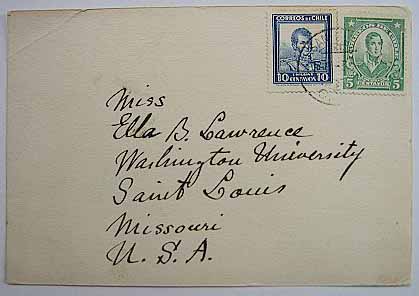 CORREOS DE CHILE
10 CENTAVOS 10
5 CENTAVOS 5
Miss
Ella B. Lawrence
Washington University
Saint Louis
Missouri
U. S. A.